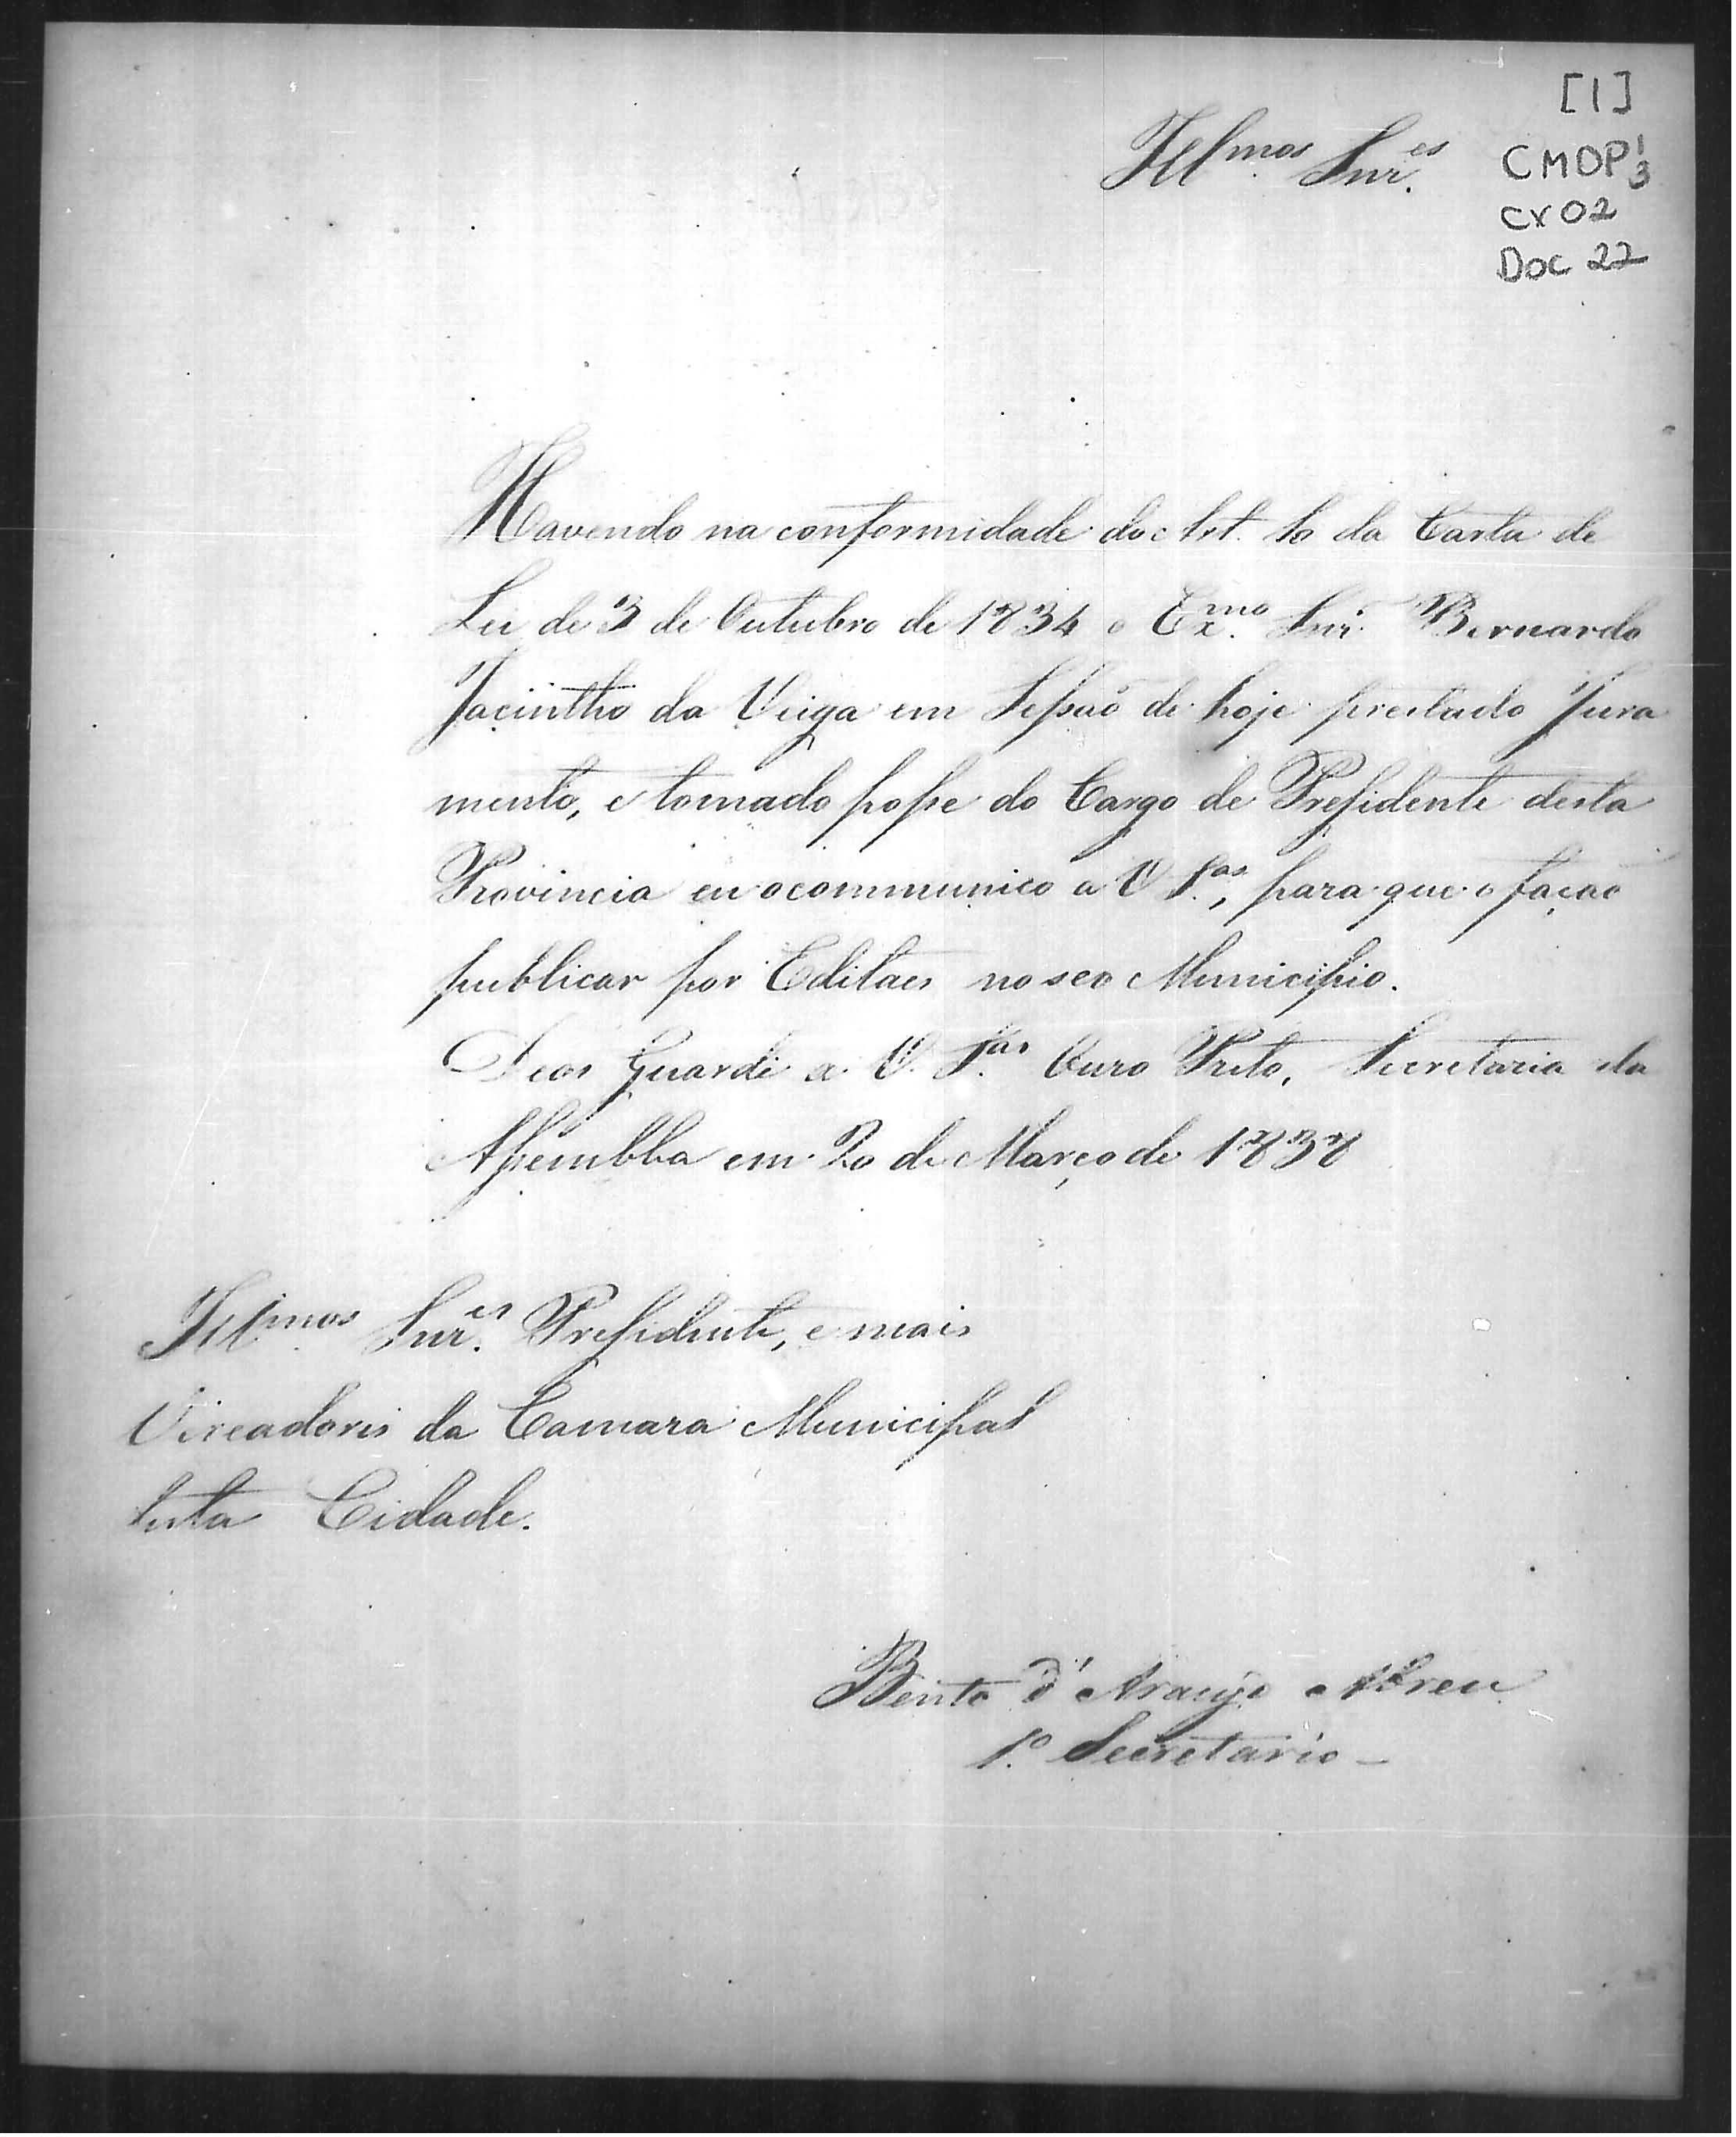 [1]
Illmos Snres.
CMOP 1/3
CX 02
DOC 22
Havendo na conformidade do Art. 10 da Carta de
Lei de 3 de Outubro de 1834 o Exmo. Snr. Bernardo
Jacintho da Veiga em Sessão de hoje prestado Jura
mento, e tomado posse do Cargo de Presidente desta
Provincia eu o communico a V. Sas., para que o fação
publicar por Editaes no seo Municipio.
Deos Guarde a V. Sas. Ouro Preto, Secretaria da
Assemblea em 20 de Março de 1838
Illmos. Snres. Presidente, e mais
Vereadores da Camara Municipal
desta Cidade.
Bento d'Araujo Abreu
1.º Secretario